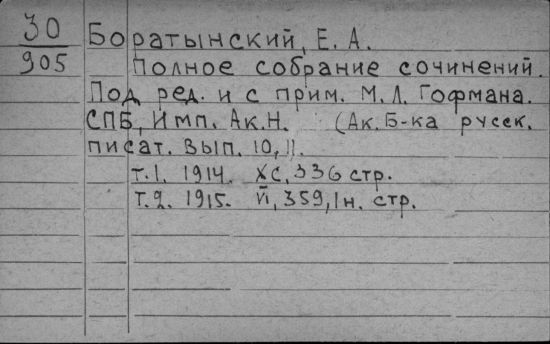 30
905
Боратынский, Е. А.
Полное собрание сочинений.
Под ред. и с прим. М.Л. Гофмана.
СПБ, Имп. Ак.Н. (Ак. Б-ка русск.
писат. Вып. 10, 11.
т.1. 1914. 336 стр.
т.2. 1915. 359, 1 н. стр.